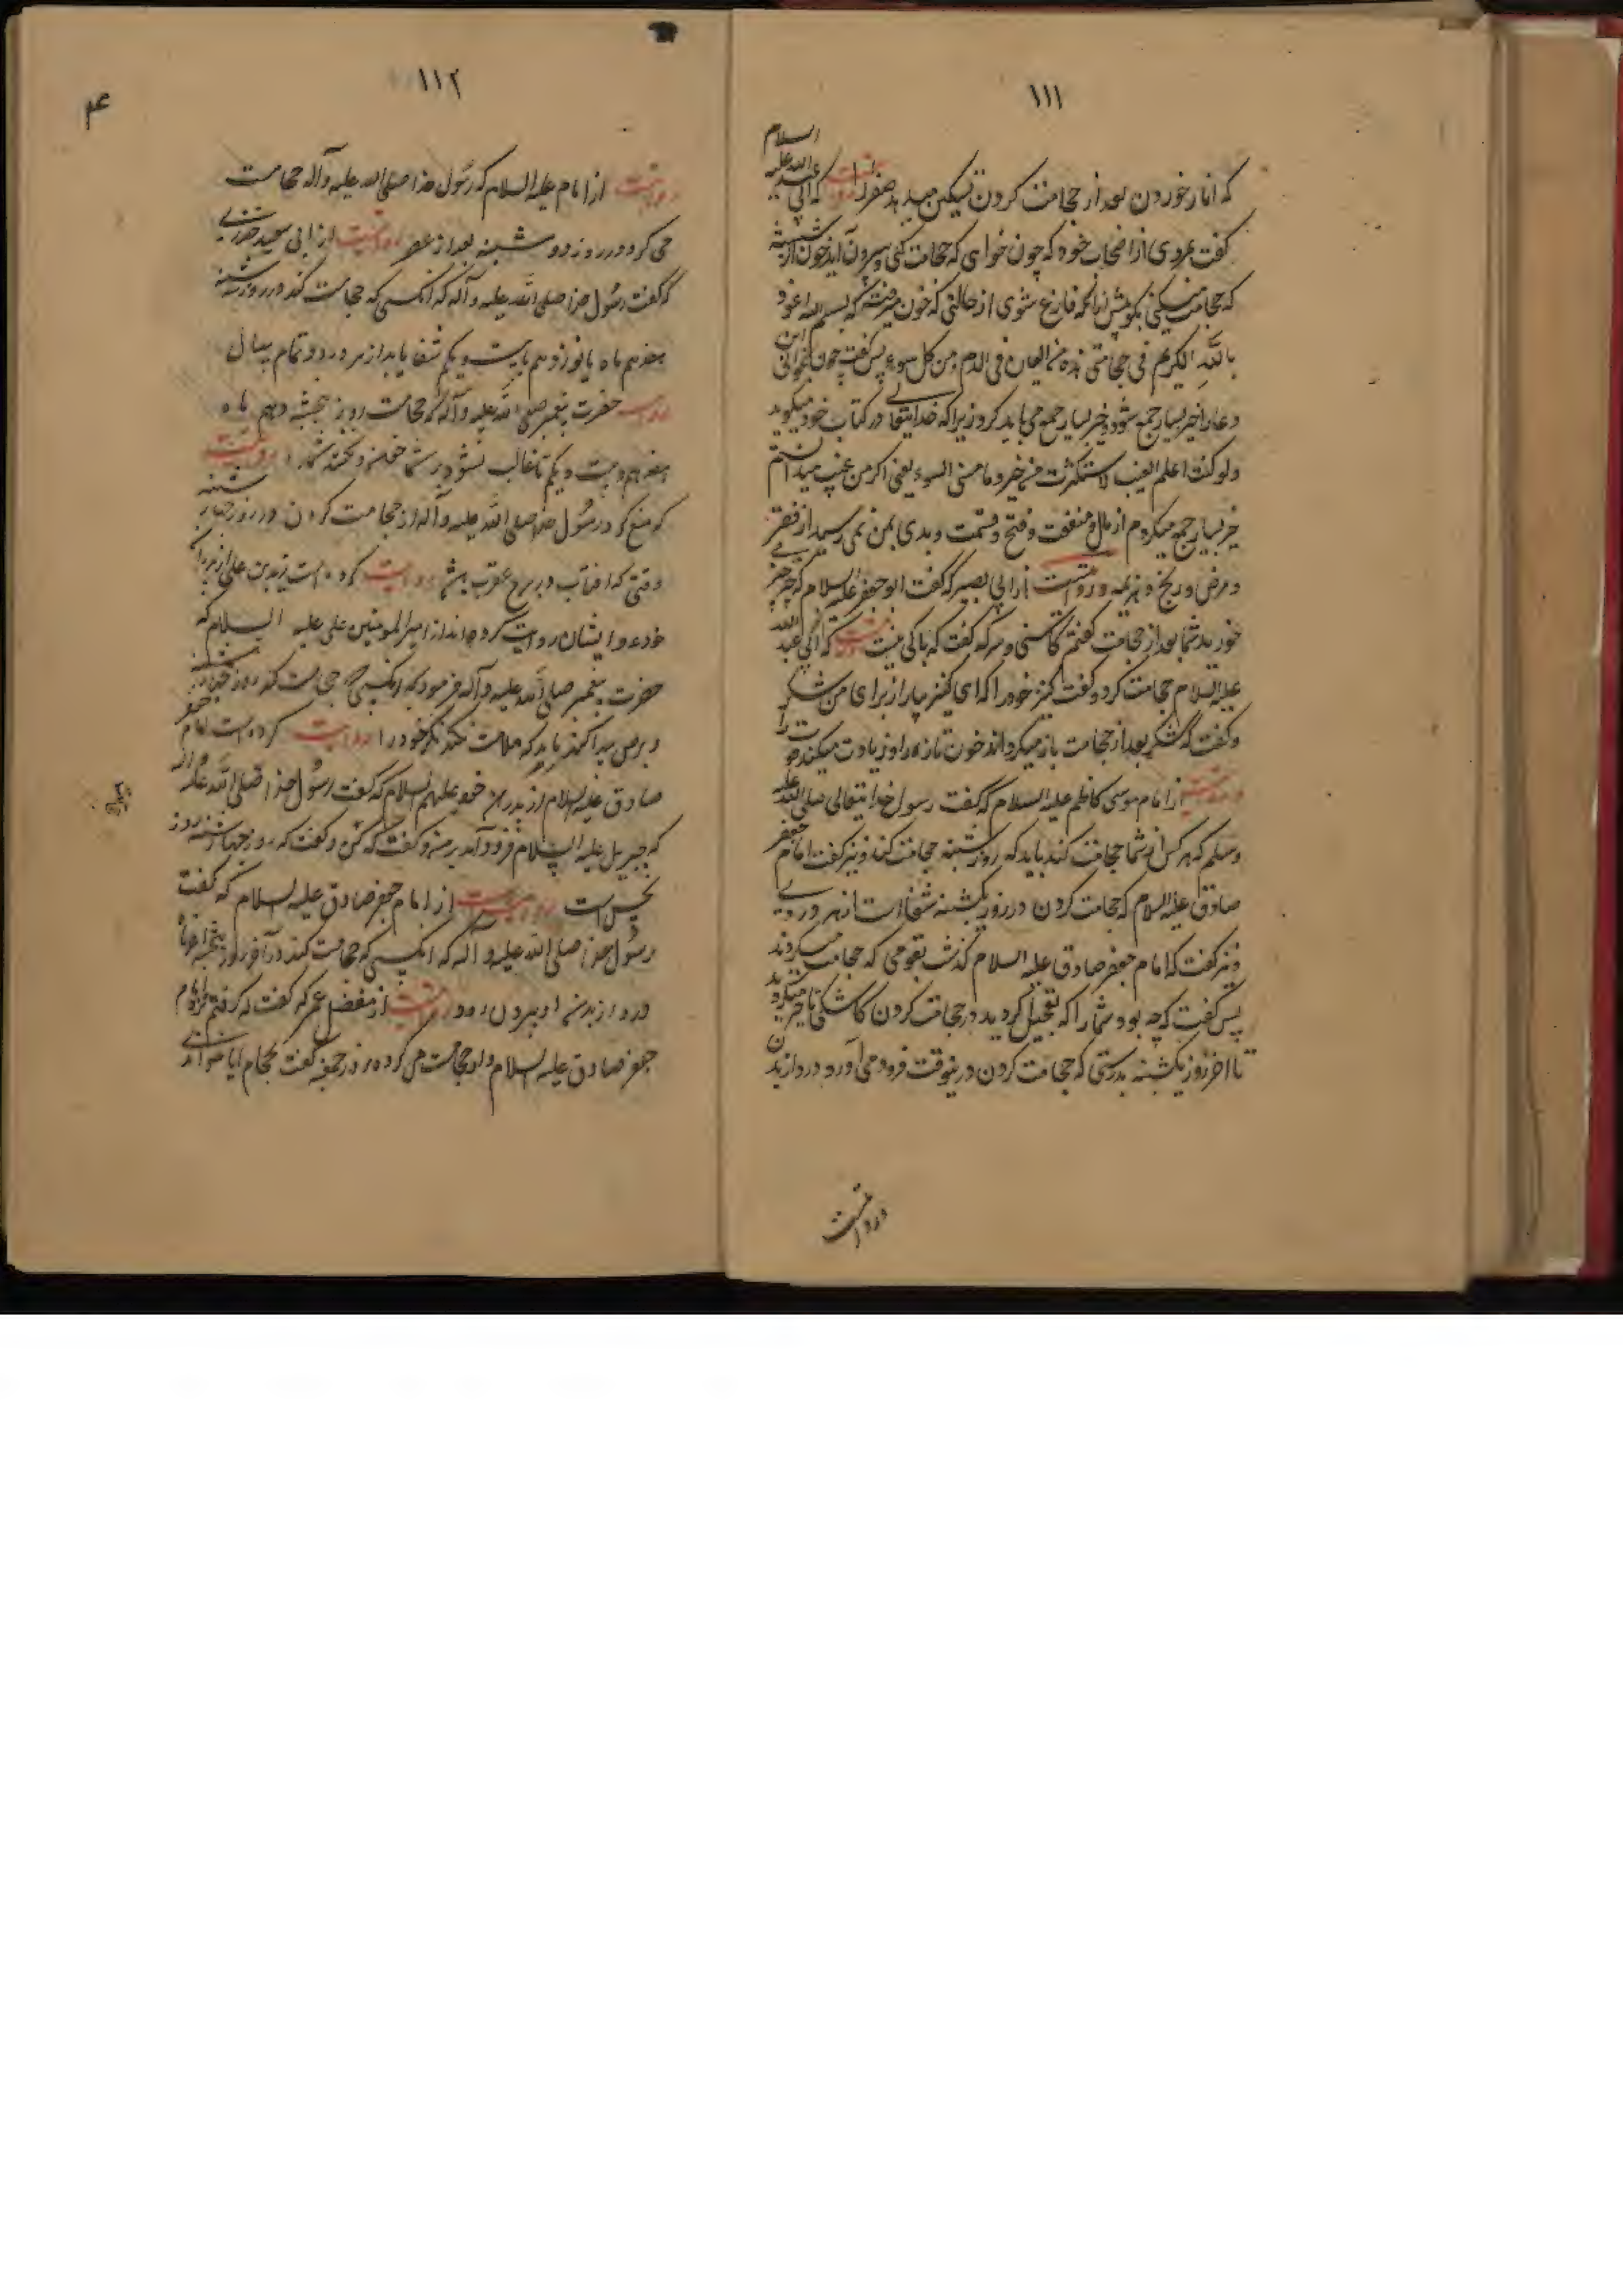 ۱۱۱
که انار خوردن بعد از حجامت کردن تسکین میدهد صفرا را روایتست که ابی عبد الله علیه السلام
گفت مردی از اصحاب خود که چون خواهی که حجامت کنی و بیرون آید خون از شیشه
که حجامت میکنی بگو پیش از انکه فارغ شوی از حالتی که خون میرفته که بسم الله اعوذ
بالله الکریم فی حجامتی هذه من العین فی الدم و من کل سوء پس گفت چون این بخوانی
دعا را خیر بسیار جمع شود و خیر بسیار جمع می باید کرد زیرا که خدایتعالی در کتاب خود میگوید
ولو کنت اعلم الغیب لاستکثرت من الخیر و ما مسنی السوء یعنی اگر من غیب میدانستم
خیر بسیار جمع میکردم از مال و منفعت و فتح و قسمت و بدی بمن نمی رسید از فقر
و مرض و رنج و هزیمه و روایتست از ابی بصیر که گفت ابو جعفر علیه السلام که چه چیز
خورید شما بعد از حجامت گفتم کاسنی و سرکه گفت که باکی نیست روایتست که ابی عبد الله
علیه السلام حجامت کرد و گفت کنیز خود را که ای کنیز بیار از برای من شکر
و گفت که شکر بعد از حجامت باز میگرداند خون تازه را و زیادت میکند
روایتست از امام موسی کاظم علیه السلام که گفت رسول خدایتعالی صلی الله علیه
وسلم که هر کس از شما حجامت کند باید که روز شنبه حجامت کند و نیز گفت امام جعفر
صادق علیه السلام که حجامت کردن در روز یکشنبه شفا است از هر دردی
و نیز گفت که امام جعفر صادق علیه السلام گذشت بقومی که حجامت میکردند
پس گفت که چه بود شما را که تعجیل کردید در حجامت کردن کاشکی تاخیر میکردید
تا اخر روز یکشنبه بدرستی که حجامت کردن در ینوقت فرود می آورد درد از بدن
روایتست
۱۱۲
روایتست از امام علیه السلام که رسول خدا صلی الله علیه و آله حجامت
می کرد در روز دو شنبه بعد از عصر روایتست از ابی سعید خدری
که گفت رسول خدا صلی الله علیه و آله که انکسی که حجامت کند در روز سه شنبه
هفدهم ماه یا نوزدهم یا بیست و یکم شفا یابد از هر درد و تمام سال
روایت حضرت پیغمبر صلی الله علیه و آله که حجامت روز پنجشنبه دهم ماه
هفدهم و بیست و یکم تا غالب نشود بر شما خون و نکشد شما را روایتست
که منع کرد رسول خدا صلی الله علیه و آله از حجامت کردن در روز چهار شنبه
وقتی که افتاب در برج عقرب باشد روایت کرده است زید بن علی از پدران
خود و ایشان روایت کرده اند از امیر المومنین علی علیه السلام که
حضرت پیغمبر صلی الله علیه و آله فرمود که انکسی که حجامت کند روز چهار شنبه
و برص پیدا کند باید که ملامت نکند مگر خود را روایت کرده است امام جعفر
صادق علیه السلام از پدران خود علیهم السلام که گفت رسول خدا صلی الله علیه و آله
که جبریل علیه السلام فرود آمد بر من و گفت که روز چهار شنبه روز
نحس است روایتست از امام جعفر صادق علیه السلام که گفت
رسول خدا صلی الله علیه و آله که انکسی که حجامت کند در آخر روز پنجشنبه
درد از بدن او بیرون رود روایتست از مفضل عمر که گفت که رفتم نزد امام
جعفر صادق علیه السلام و او حجامت می کرد در روز جمعه گفت